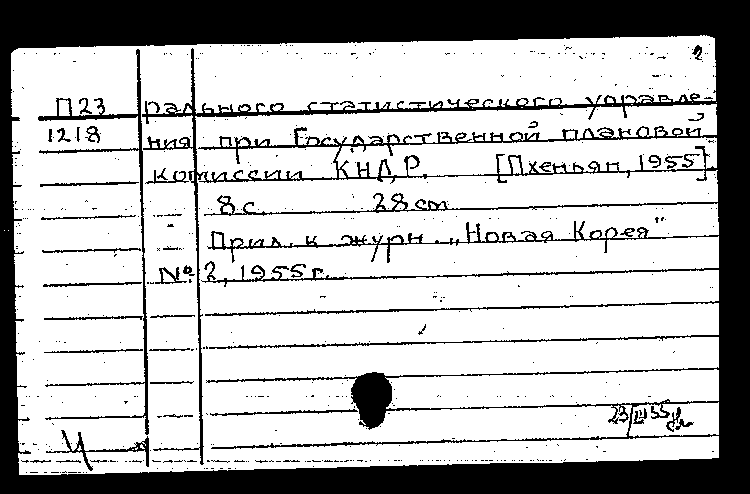 2
П23 рального статистического управле-
1218 ния при Государственной плановой
комиссии КНДР. [Пхеньян, 1955]
8 с. 28 cm
Прил. к журн. „Новая Корея"
№ 2, 1955 г.
23/III 55
Ч